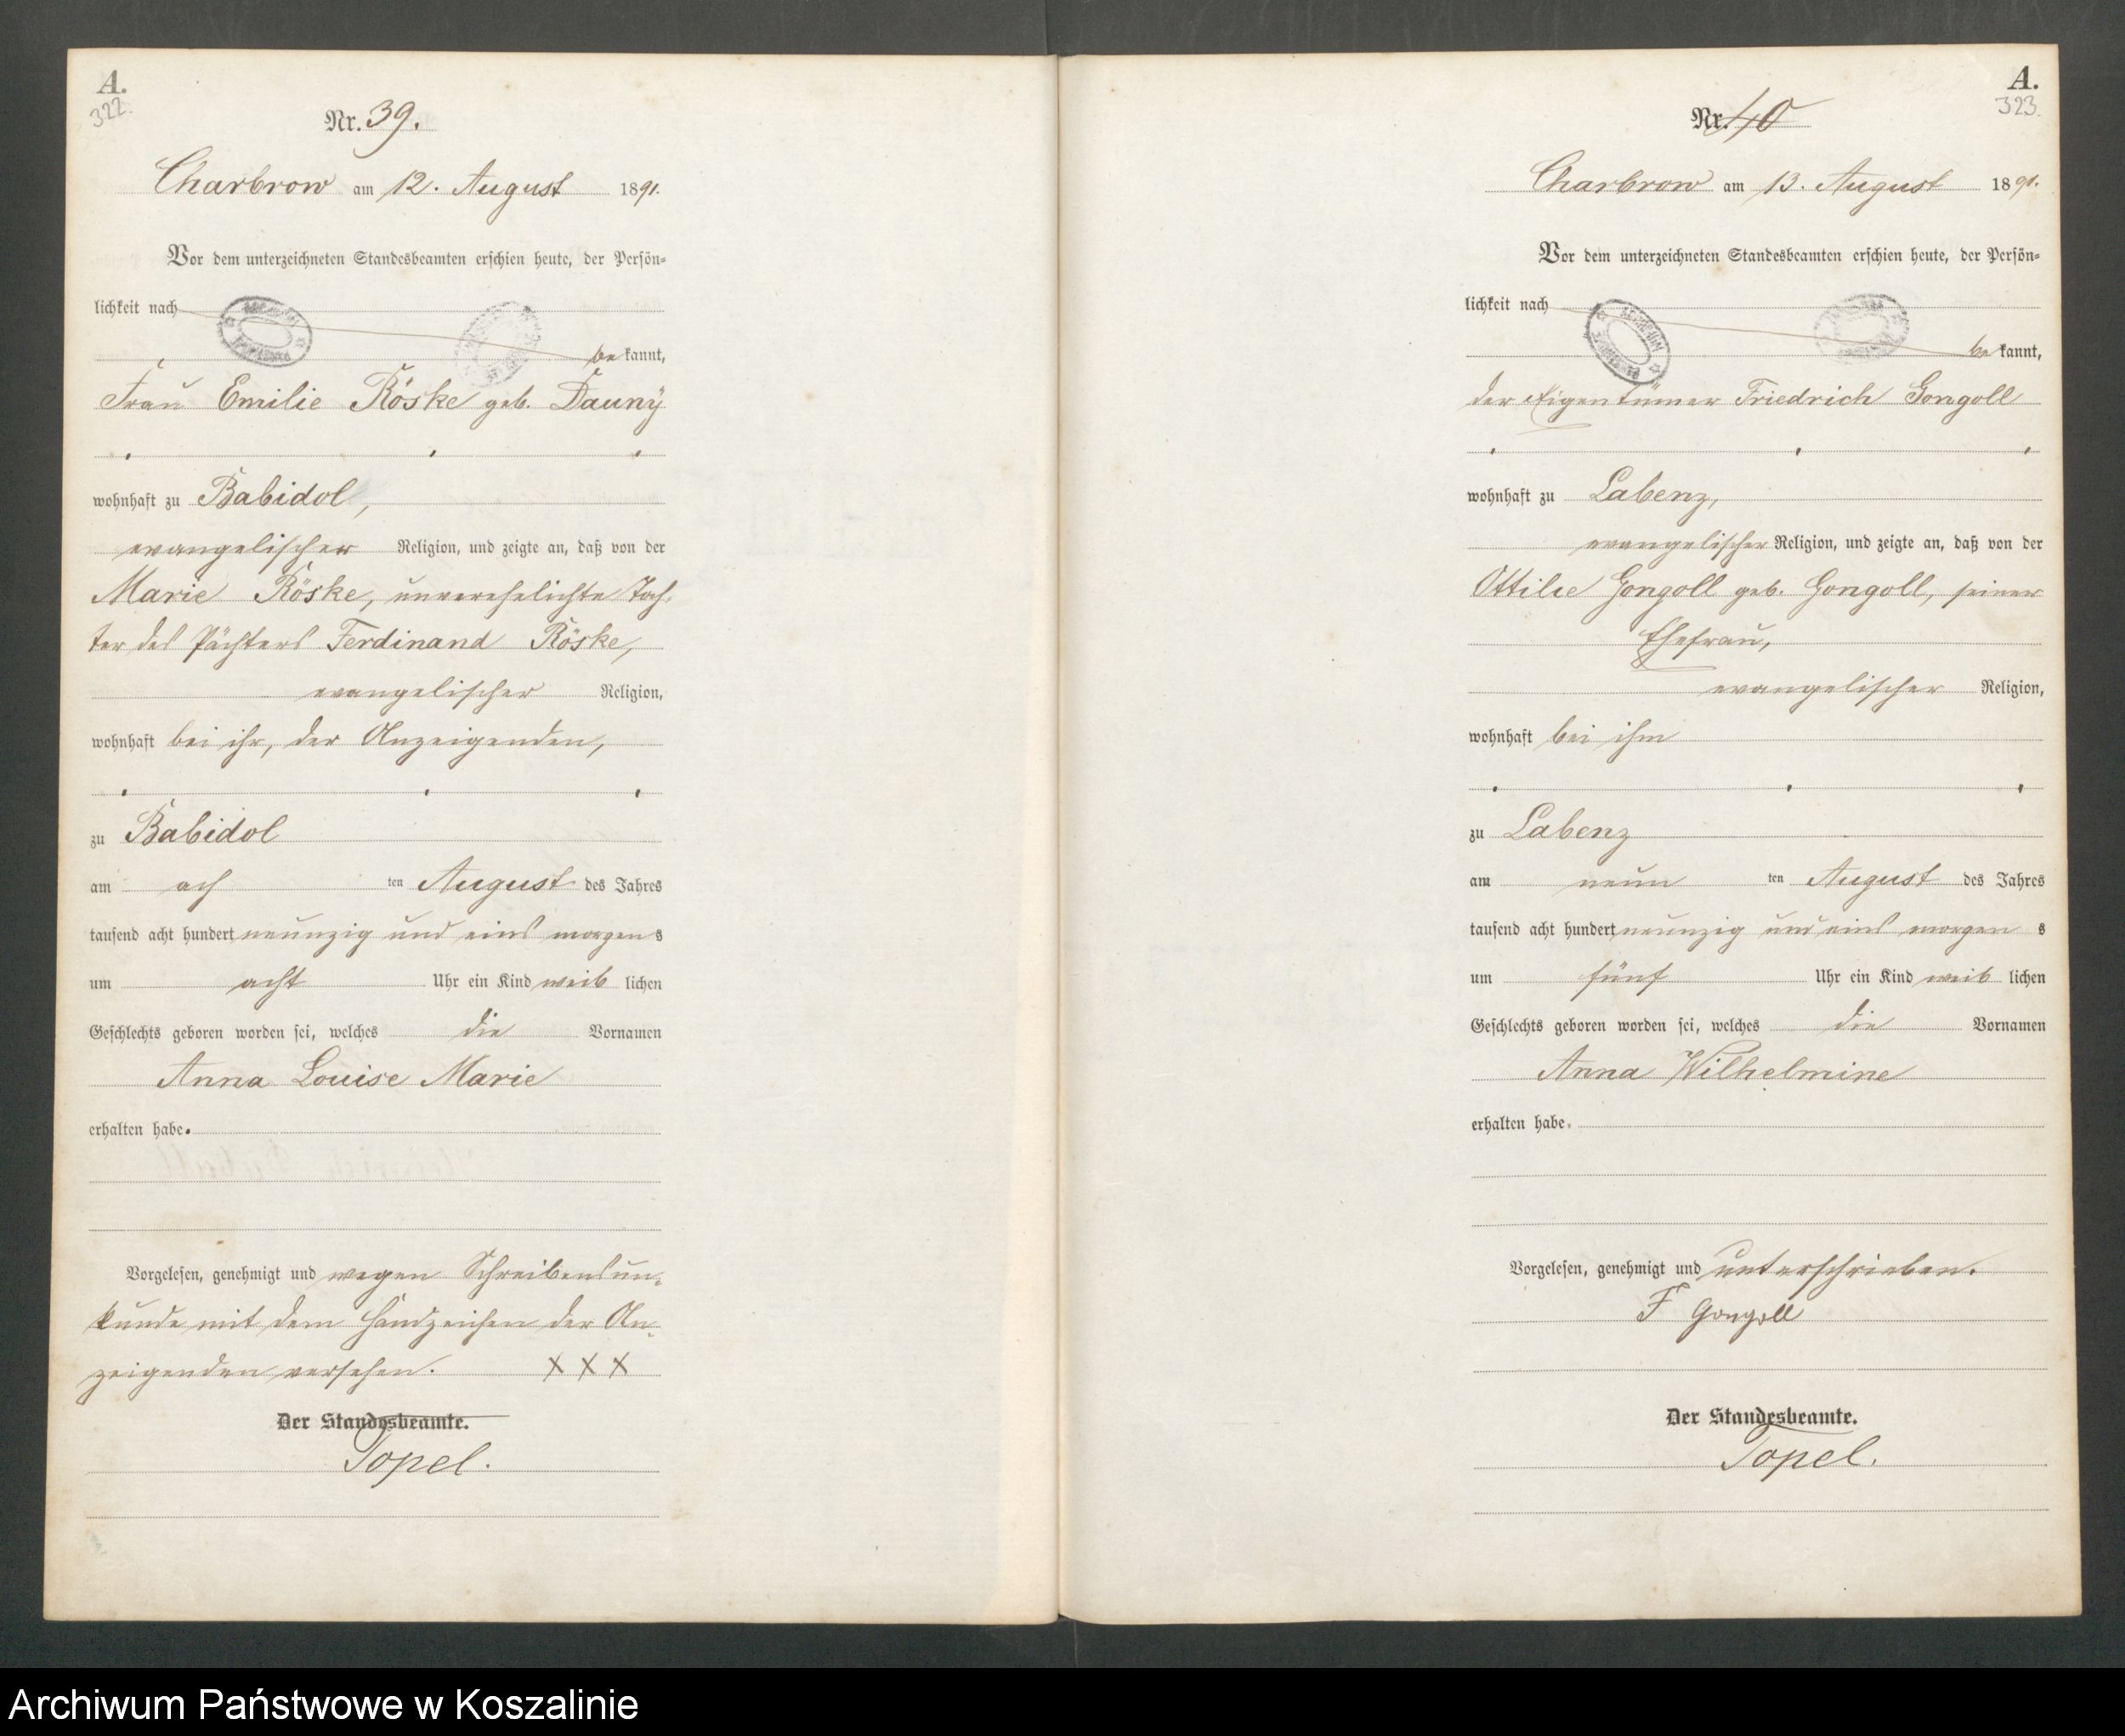 A.
322.
Nr. 39.
Charbrow am 12. August 1891.
Vor dem unterzeichneten Standesbeamten erschien heute, der Persön-
lichkeit nach
be kannt,
Frau Emilie Röske geb. Dauny
wohnhaft zu Babidol,
evangelischer Religion, und zeigte an, daß von der
Marie Röske, unverehelichte Toch-
ter des Pächters Ferdinand Röske,
evangelischer Religion,
wohnhaft bei ihr, der Anzeigenden,
zu Babidol
am ach ten August des Jahres
tausend acht hundert neunzig und eins morgens
um acht Uhr ein Kind weib lichen
Geschlechts geboren worden sei, welches die Vornamen
Anna Louise Marie
erhalten habe.
Vorgelesen, genehmigt und wegen Schreibensun-
kunde mit dem Handzeichen der An-
zeigenden versehen. XXX
Der Standesbeamte.
Topel.
A.
323.
Nr. 40
Charbrow am 13. August 1891.
Vor dem unterzeichneten Standesbeamten erschien heute, der Persön-
lichkeit nach
be kannt,
der Eigentümer Friedrich Gongoll
wohnhaft zu Labenz,
evangelischer Religion, und zeigte an, daß von der
Ottilie Gongoll geb. Gongoll, seiner
Ehefrau,
evangelischer Religion,
wohnhaft bei ihm
zu Labenz
am neun ten August des Jahres
tausend acht hundert neunzig und eins morgen s
um fünf Uhr ein Kind weib lichen
Geschlechts geboren worden sei, welches die Vornamen
Anna Wilhelmine
erhalten habe.
Vorgelesen, genehmigt und unterschrieben.
F Gongoll
Der Standesbeamte.
Topel.
Archiwum Państwowe w Koszalinie